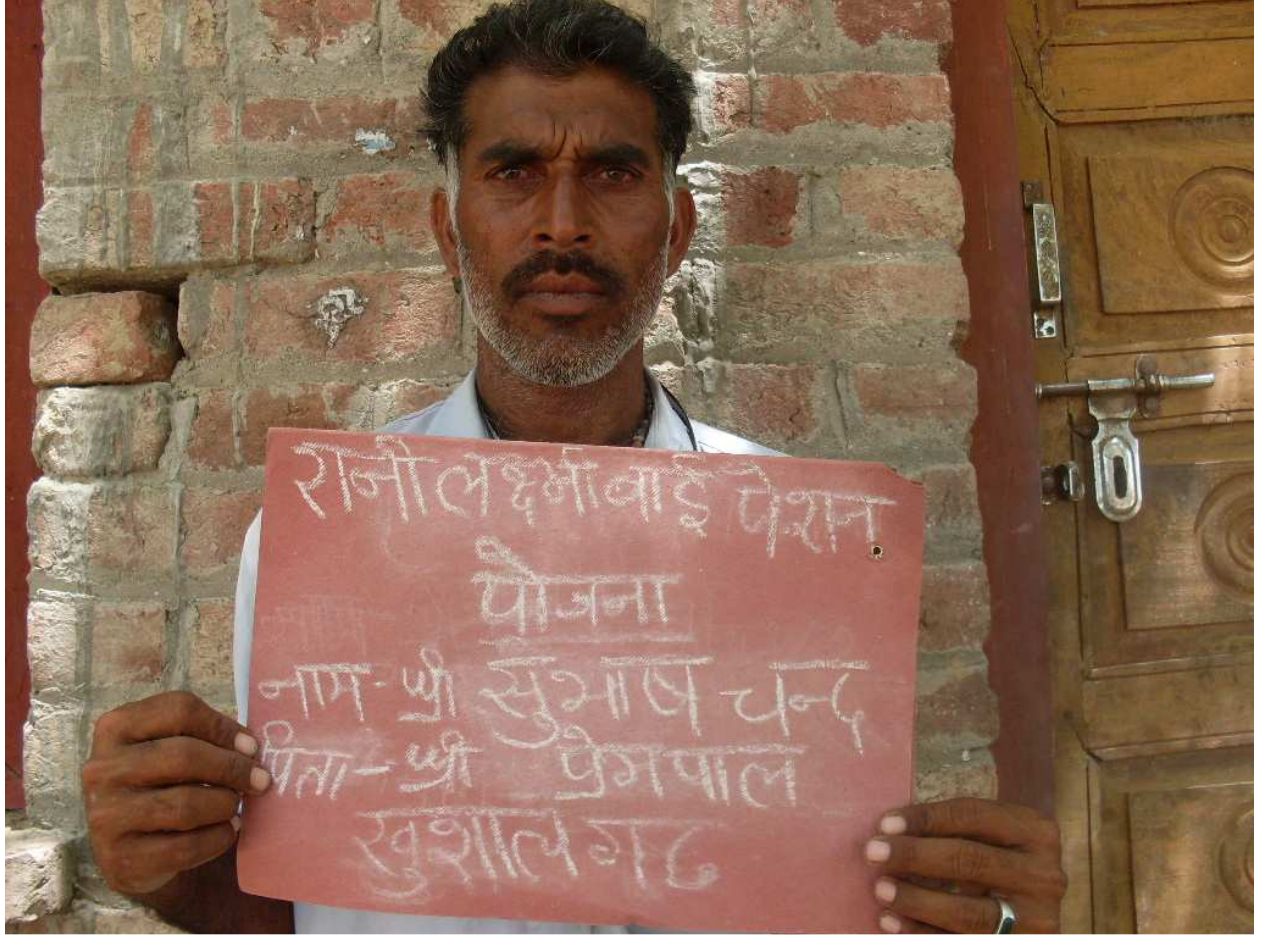 रानी लक्ष्मीबाई पेंशन
योजना
नाम - श्री सुभाष चन्द
पिता - श्री प्रेमपाल
खुशालगढ